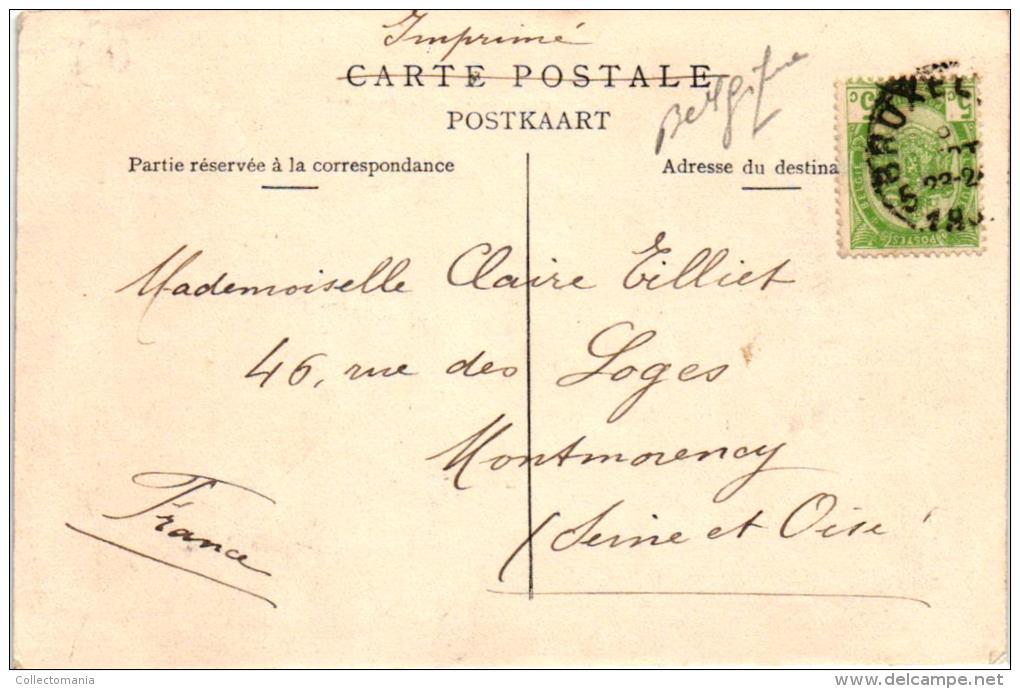 Imprimé
CARTE POSTALE
POSTKAART
Belgique
Partie réservée à la correspondance
Adresse du destina
BRUXEL
5 c 5 c
22-2
POSTES
Mademoiselle Claire Tilliet
46, rue des Loges
Montmorency
(Seine et Oise
France
Collectomania
www.delcampe.net